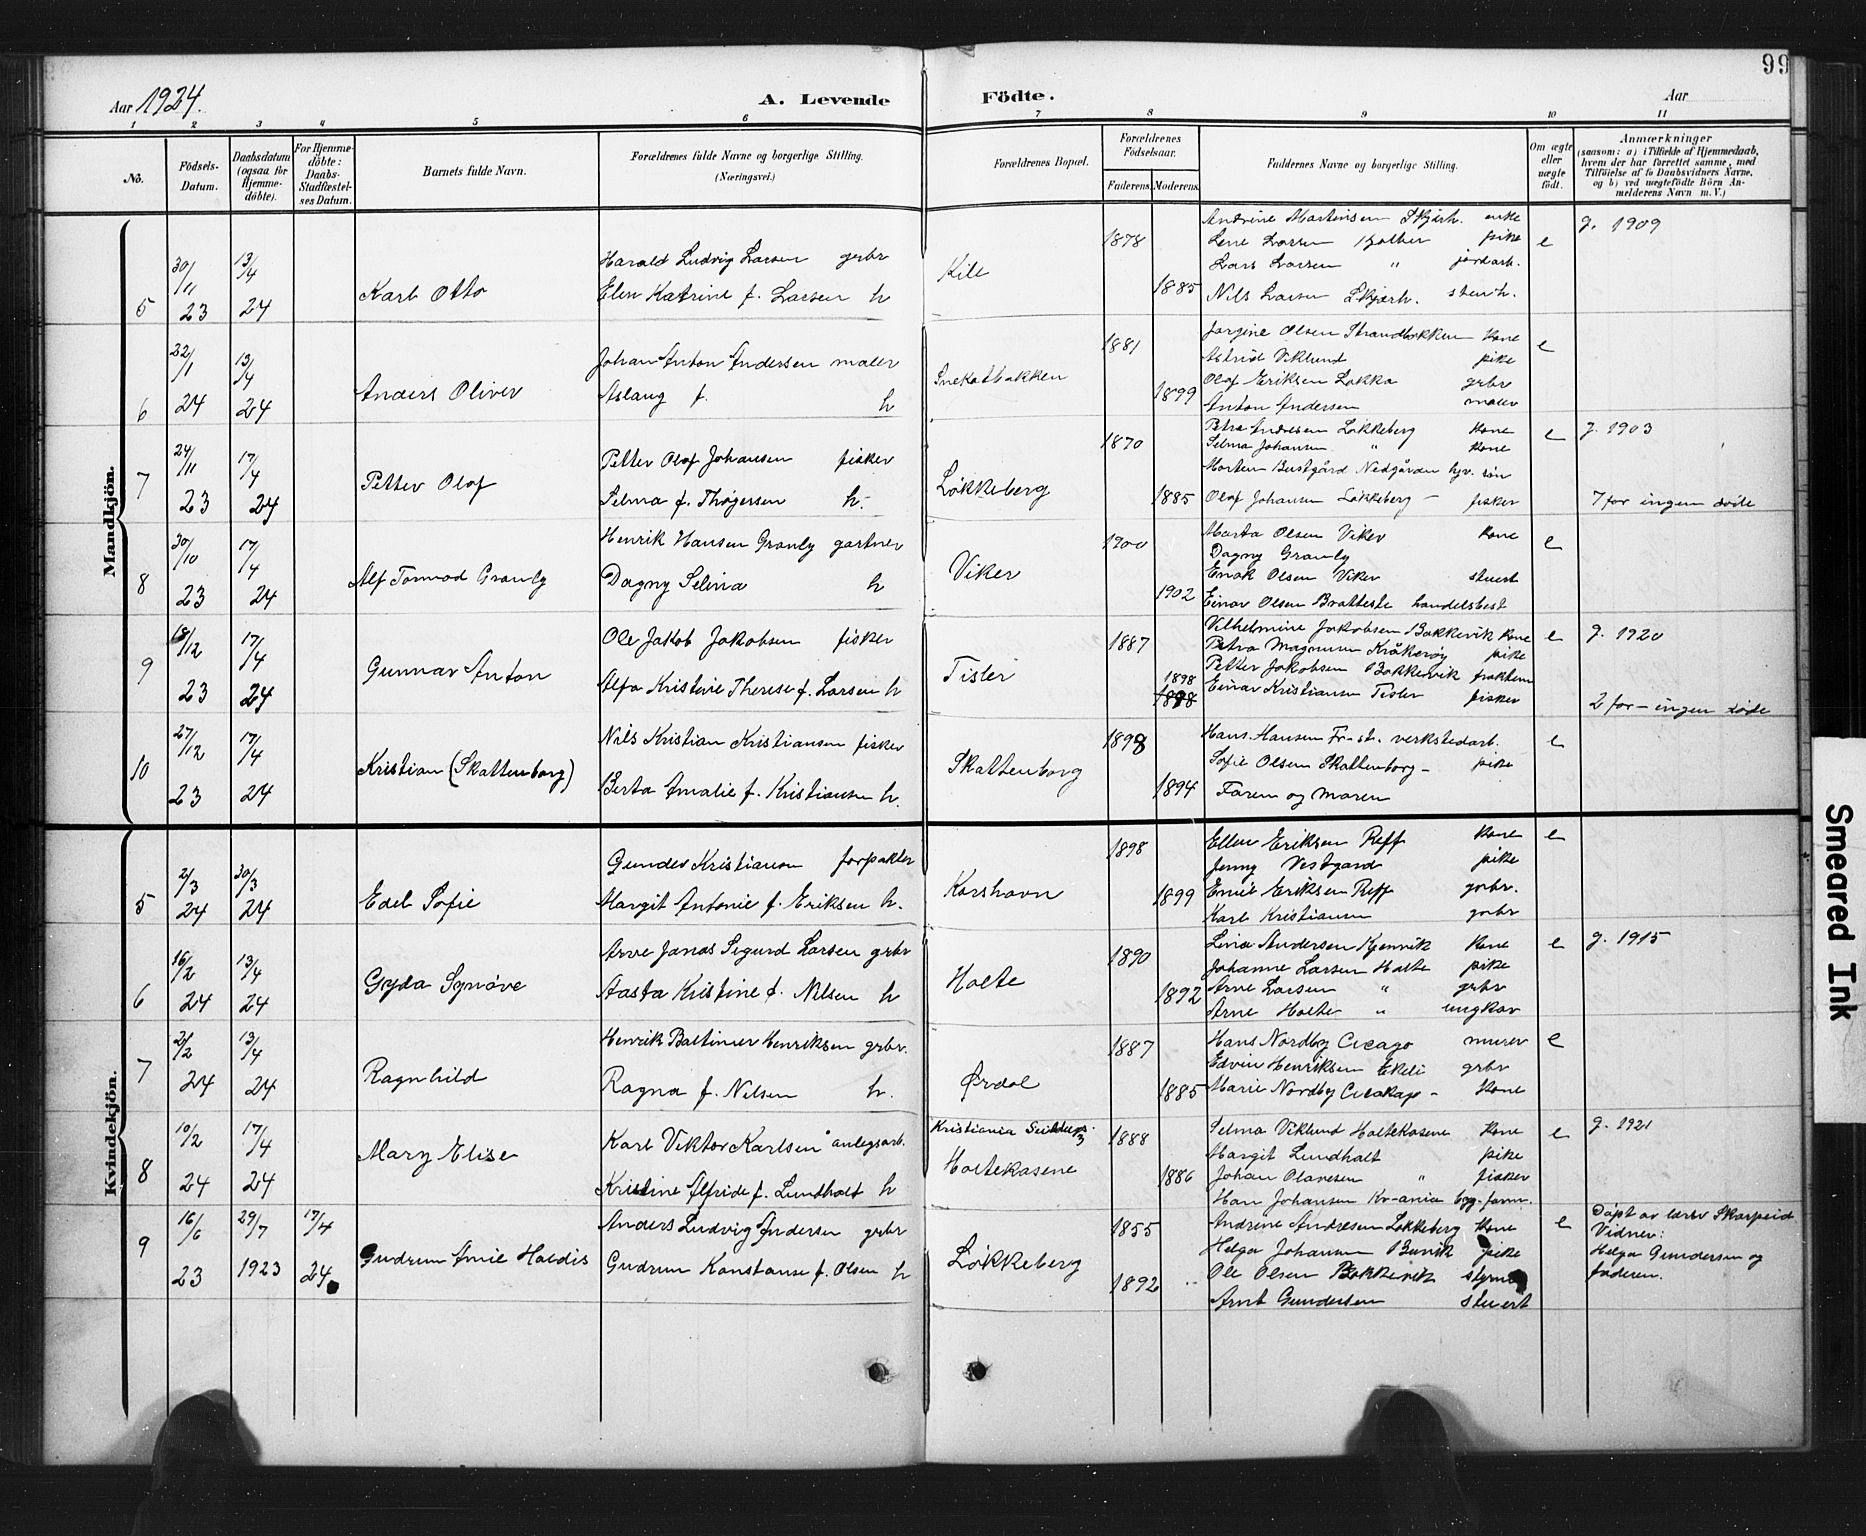 99
Aar 1924.
A. Levende Födte.
Aar
1 2 3 4 5 6 7 8 9 10 11
No.
Födsels-Datum.
Daabsdatum (ogsaa for Hjemme-döbte).
For Hjemme-döbte: Daabs-Stadfæstel-ses Datum.
Barnets fulde Navn.
Forældrenes fulde Navne og borgerlige Stilling.
(Næringsvei.)
Forældrenes Bopæl.
Forældrenes Födselsaar.
Faderens. Moderens.
Faddernes Navne og borgerlige Stilling.
Om ægte eller uægte födt.
Anmærkninger
(saasom: a) i Tilfælde af Hjemmedaab, hvem der har forrettet samme, med Tilföielse af to Daabsvidners Navne, og b) ved uægtefödte Börn An-melderens Navn m. V.)
Mandkjön.
5 30/11 23 13/4 24 Karl Otto
Harald Ludvig Larsen grbr
Elen Katrine f. Larsen h
Kile 1878 1885
Andrine Martinsen Skjærh. enke
Lene Larsen pike
Lars Larsen " jordarb.
Nils Larsen Skjærh. stenh.
e g. 1909
6 22/1 24 13/4 24 Anders Oliver
Johan Anton Andersen maler
Aslaug f. h
Snekotbakken 1881 1899
Jørgine Olsen Strandbakken kone
Astrid Viklund pike
Olaf Eriksen Løkka grbr
Anton Andersen maler
e
7 24/11 23 17/4 24 Petter Olaf
Petter Olaf Johansen fisker
Selma f. Thøgersen h.
Løkkeberg 1870 1885
Petra Andresen Løkkeberg kone
Selma Johansen " kone
Morten Bustgård Nedgården søn
Olaf Johansen Løkkeberg – fisker
e g. 1903
7 før ingen døde
8 30/10 23 17/4 24 Alf Tormod Granly
Henrik Hansen Granly gartner
Dagny Selma h
Viker 1900 1902
Marta Olsen Viker kone
Dagny Granly
Enok Olsen Viker stuert
Einar Olsen Bratteste handelsbest
e
9 18/12 23 17/4 24 Gunnar Anton
Ole Jakob Jakobsen fisker
Alfa Kristine Therese f. Larsen h
Tisler 1887 1898
Vilhelmine Jakobsen Bakkevik kone
Petra Magnussen Kråkerøy pike
Petter Jakobsen Bakkevik
Einar Kristiansen Tisler fisker
e g. 1920
2 før – ingen døde
10 27/12 23 17/4 24 Kristian (Skattenborg)
Nils Kristian Kristiansen fisker
Berta Amalie f. Kristiansen h.
Skattenborg 1898 1894
Hans Hansen Fr-st. verkstedarb.
Sofie Olsen Skattenborg – pike
Faren og moren
e
Kvindekjön.
5 2/3 24 30/3 24 Edel Sofie
Gunder Kristiansen forpakter
Margit Antonie f. Eriksen h.
Korshavn 1898 1899
Ellen Eriksen Reff kone
Jenny Vestgard pike
Emil Eriksen Reff grbr.
Karl Kristiansen grbr
e
6 16/2 24 13/4 24 Gyda Synøve
Arve Jonas Sigurd Larsen grbr
Aasta Kristine f. Nilsen h
Holte 1890 1892
Lina Andersen Kjennvik kone
Johanne Larsen Holte pike
Arve Larsen " grbr
Arne Holte " ungkar
e g. 1915
7 2/2 24 13/4 24 Ragnhild
Henrik Baltinius Henriksen grbr.
Ragna f. Nilsen h.
Ørdal 1887 1885
Hans Nordby Cicago murer
Edvin Henriksen Ekeli grbr
Marie Nordby – kone
e
8 10/2 24 17/4 24 Mary Elise
Karl Viktor Karlsen anlegsarb.
Kristine Alfride f. Lundholt h
Kristiania
Holtekasene 1888 1886
Selma Viklund Holtekasene kone
Margit Lundholt pike
Johan Olavesen " fisker
Hans Johansen Kr-ania byg.form.
e g. 1921
9 16/6 23 29/7 1923 17/4 24 Gudrun Amie Haldis
Anders Ludvig Andersen grbr
Gudrun Konstanse f. Olsen h
Løkkeberg 1855 1892
Andrine Andresen Løkkeberg kone
Helga Johansen pike
Ole Olsen Bakkevik
Arnt Gundersen stuert
e Døpt av lærer Skarpeid
Vidner:
Helga Gundersen og
faderen.
Smeared Ink